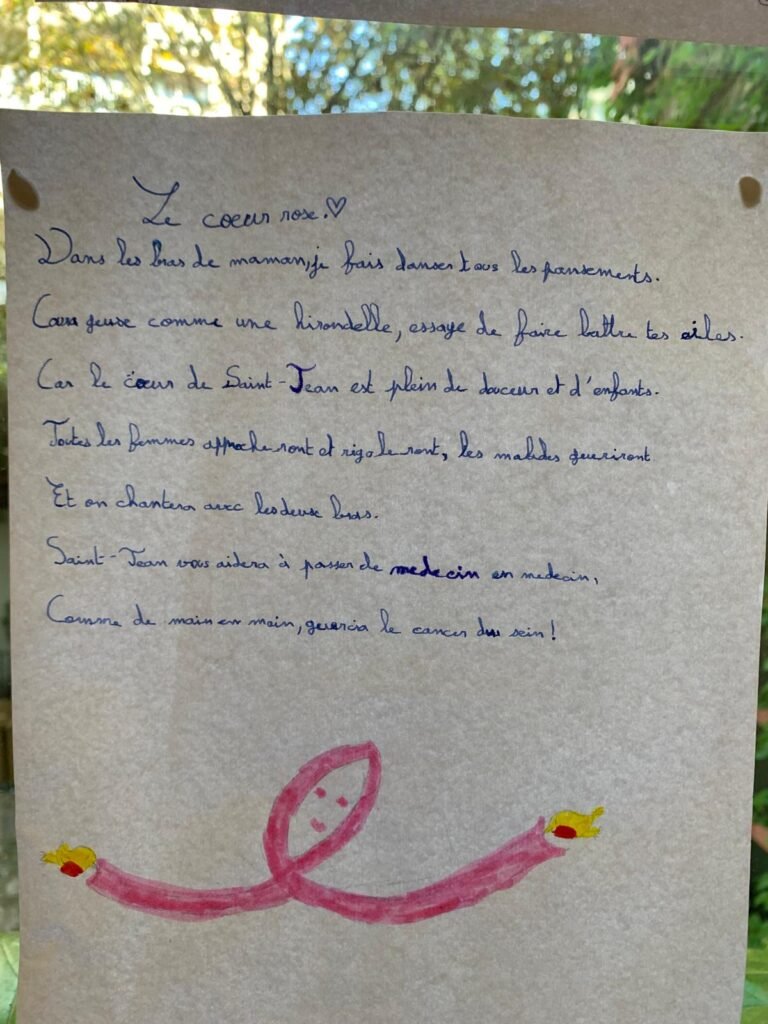 Le coeur rose.♡
Dans les bras de maman, je fais danser tous les pansements.
Courageuse comme une hirondelle, essaye de faire battre tes ailes.
Car le coeur de Saint-Jean est plein de douceur et d'enfants.
Toutes les femmes approcheront et rigoleront, les malades gueriront
Et on chantera avec les deux bras.
Saint-Jean vous aidera à passer de medecin en medecin,
Comme de main en main, guerira le cancer du sein !